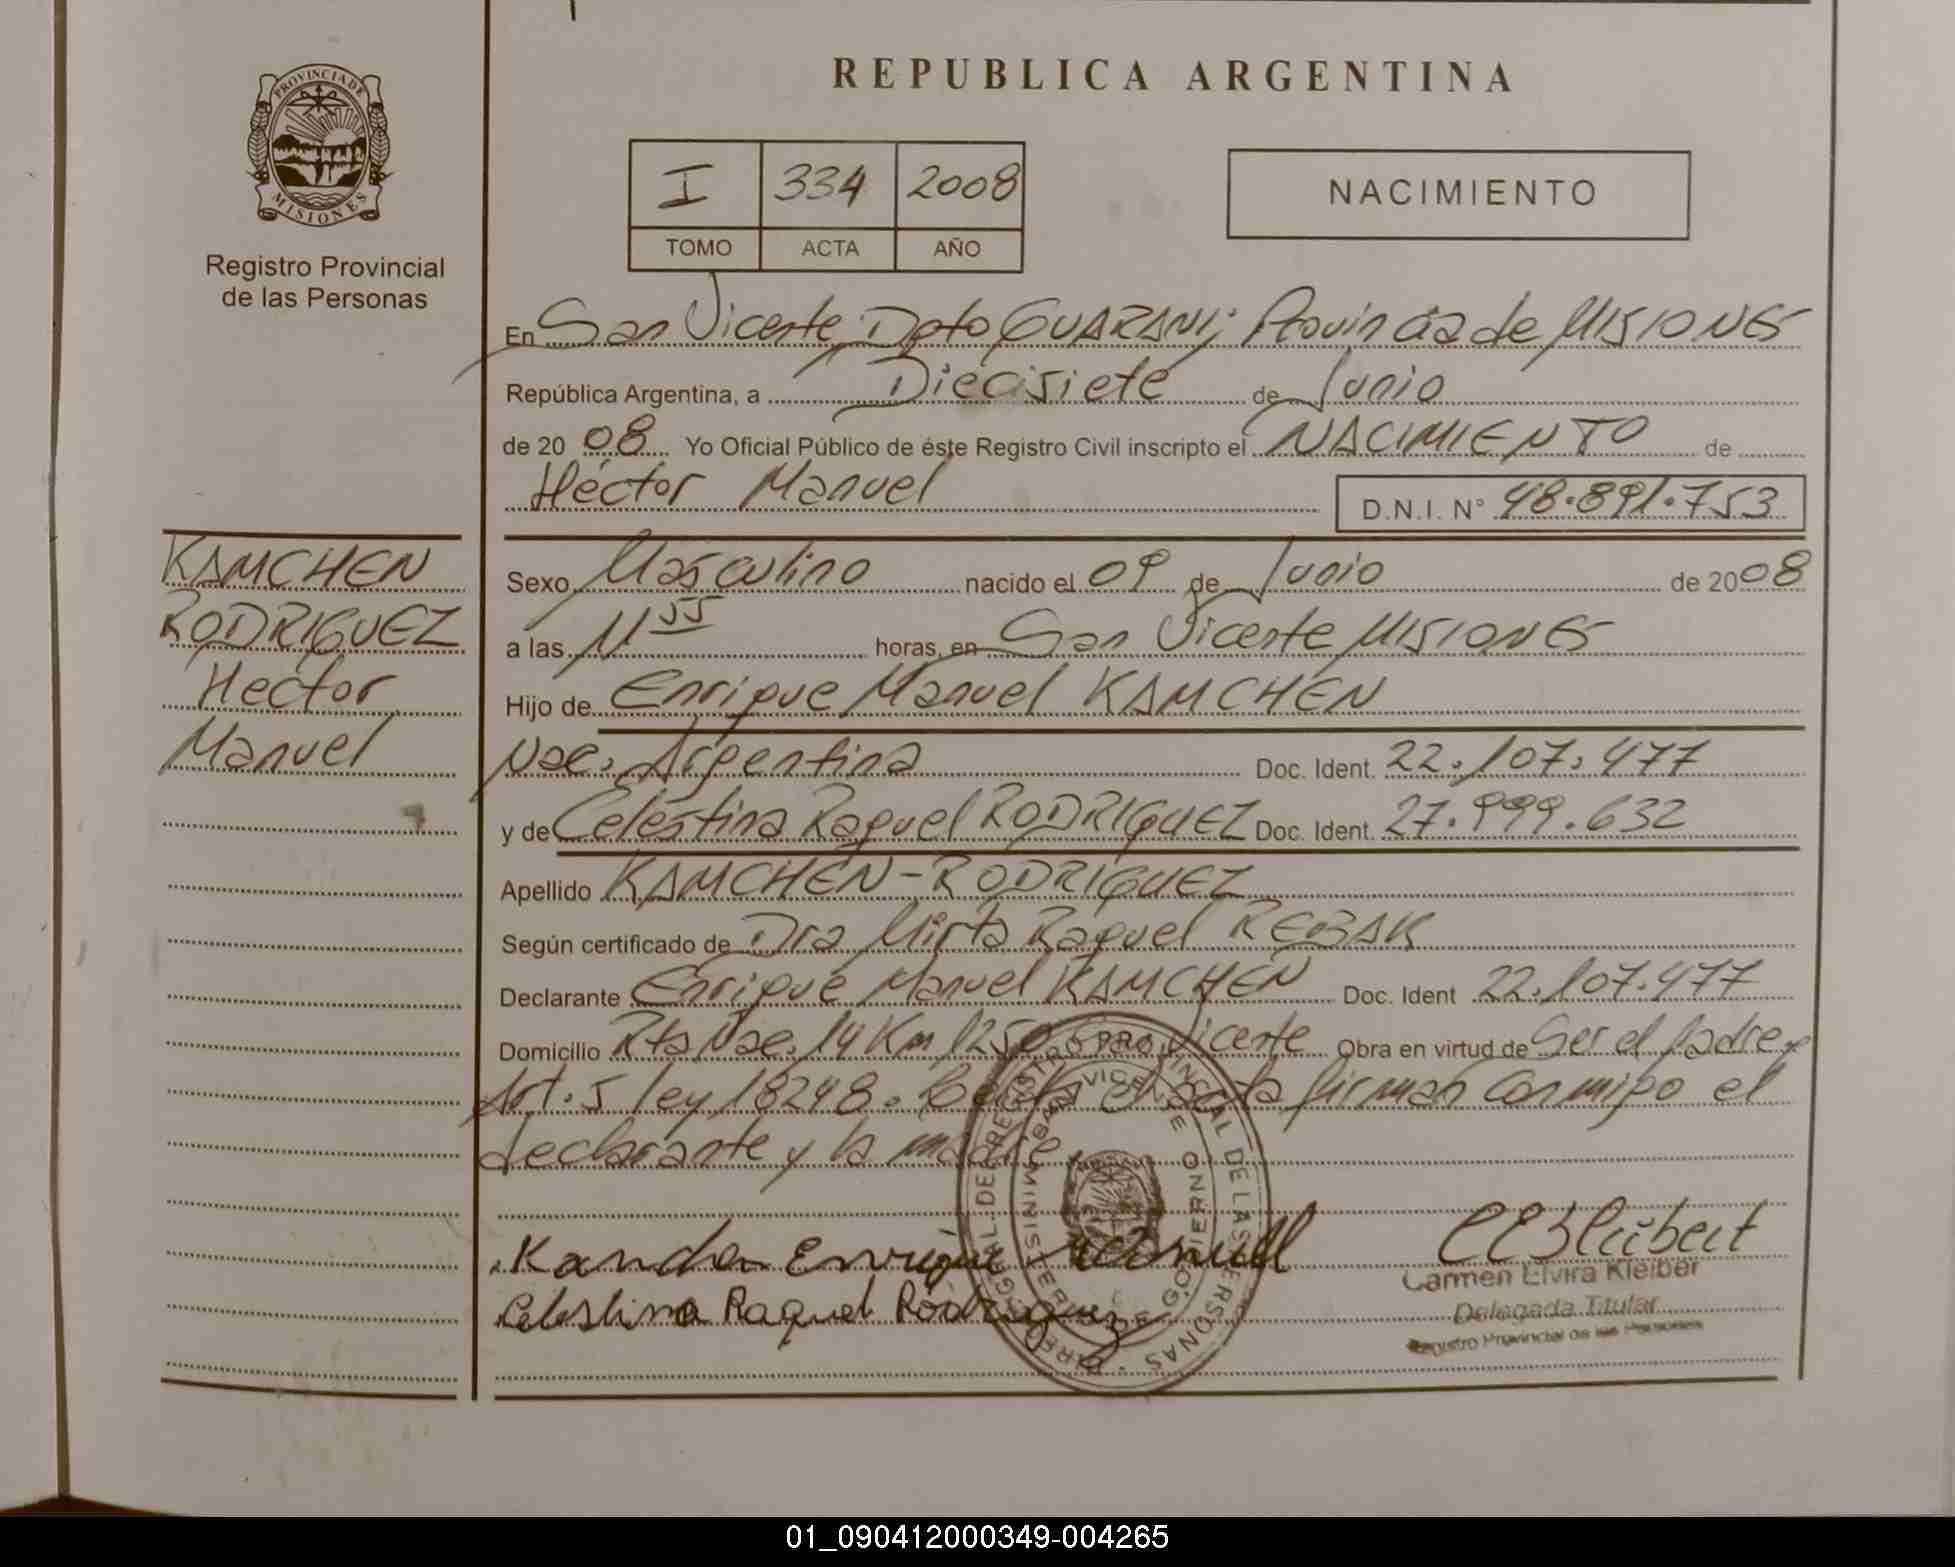 REPUBLICA ARGENTINA
PROVINCIA DE
MISIONES
Registro Provincial
de las Personas
I 334 2008
TOMO ACTA AÑO
NACIMIENTO
En San Vicente Dpto GUARANI; Provincia de MISIONES
República Argentina, a Diecisiete de Junio
de 20 08 Yo Oficial Público de éste Registro Civil inscripto el NACIMIENTO de
Héctor Manuel D.N.I. N° 48.891.753
KAMCHEN
RODRIGUEZ
Hector
Manuel
Sexo Masculino nacido el 09 de Junio de 2008
a las 11 55 horas, en San Vicente MISIONES
Hijo de Enrique Manuel KAMCHEN
Nac. Argentina Doc. Ident. 22.107.477
y de Celestina Raquel RODRIGUEZ Doc. Ident. 27.999.632
Apellido KAMCHEN-RODRIGUEZ
Según certificado de Dra Mirta Raquel REBAK
Declarante Enrique Manuel KAMCHEN Doc. Ident 22.107.477
Domicilio Rta Nac. 14 Km 1250 San Vicente Obra en virtud de Ser el padre.
Art. 5 ley 18248. el acta firman conmigo el
declarante y la madre.
Enrique Manuel
Celestina Raquel Rodriguez
Carmen Elvira Kleiber
Delegada Titular
Registro Provincial de las Personas
01_090412000349-004265